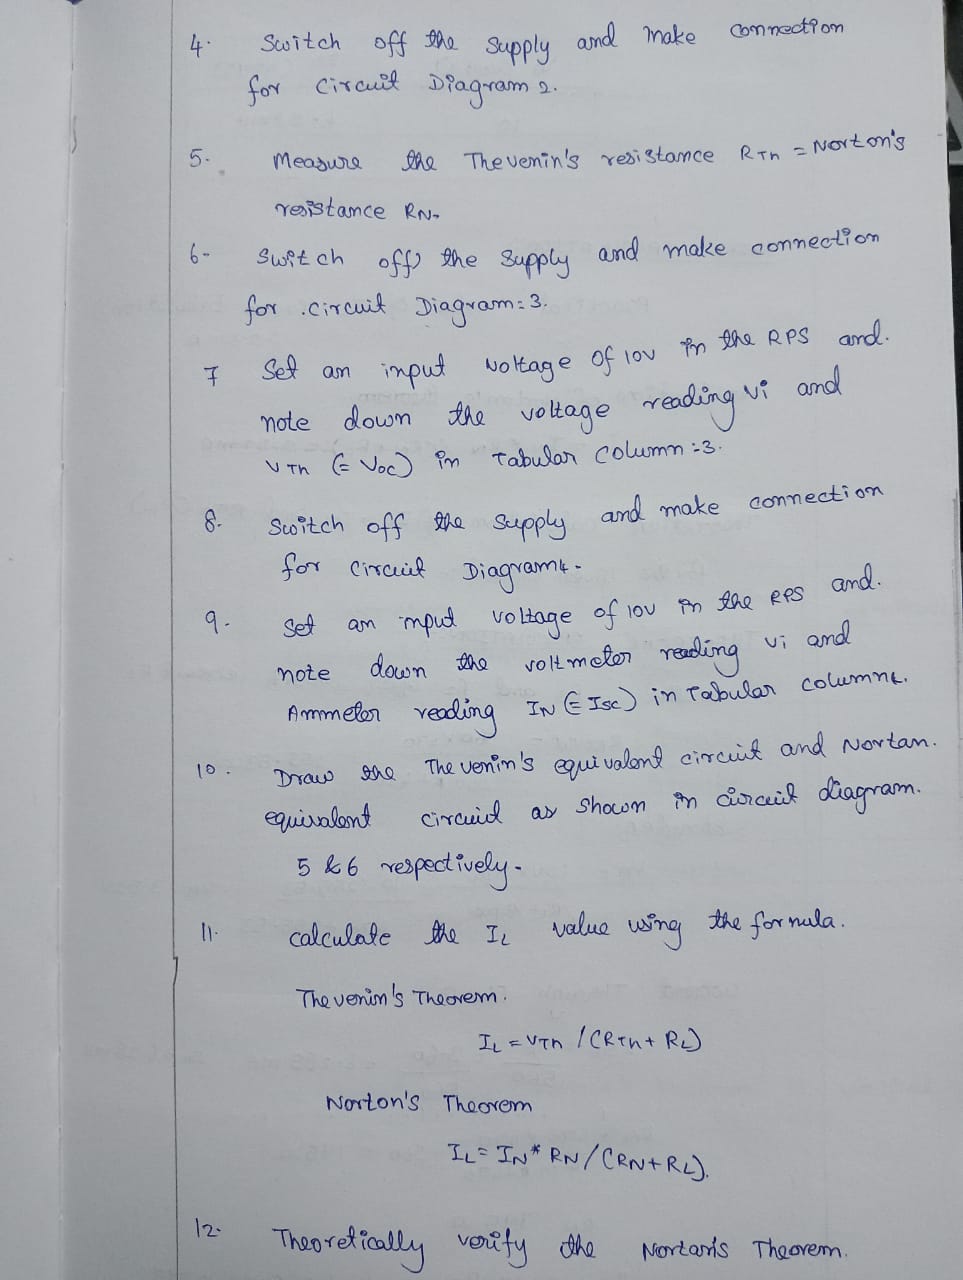 4. Switch off the supply and make connection
for circuit Diagram 2.
5. Measure the Thevenin's resistance RTh = Norton's
resistance RN.
6- Switch off the supply and make connection
for circuit Diagram:3.
7 Set an input voltage of 10V in the RPS and.
note down the voltage reading Vi and
VTh (= Voc) in Tabular Column:3.
8. Switch off the supply and make connection
for Circuit Diagram4.
9. Set an input voltage of 10V in the RPS and.
note down the voltmeter reading Vi and
Ammeter reading IN (= Isc) in Tabular column4.
10. Draw the Thevenin's equivalent circuit and Nortan.
equivalent circuid as shown in circuit diagram.
5 & 6 respectively.
11. calculate the IL value using the formula.
Thevenin's Theorem.
IL = VTh / (RTh + RL)
Norton's Theorem
IL = IN * RN / (RN + RL).
12. Theoretically verify the Nortan's Theorem.